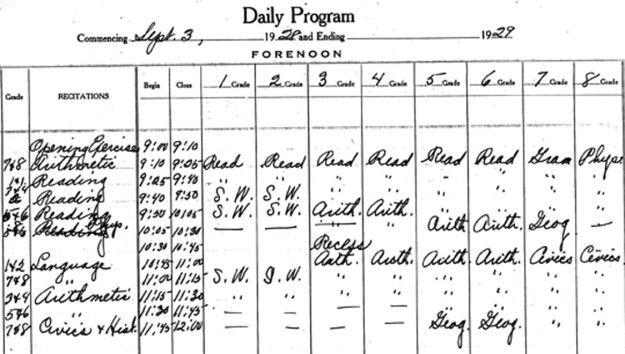 Daily Program
Commencing Sept. 3, 1928 and Ending 1929
FORENOON
Grade RECITATIONS Begin Close 1 Grade 2 Grade 3 Grade 4 Grade 5 Grade 6 Grade 7 Grade 8 Grade
Opening Exercises 9:00 9:10
7&8 Arithmetic 9:10 9:05 Read Read Read Read Read Read Gram Phys
Reading 9:25 9:40 " " " " " " " "
2 Reading 9:40 9:50 S.W. S.W. " " " " " "
Reading 9:50 10:05 S.W. S.W. Arith. Arith. " " " "
5&6 Reading 10:05 10:30 — — " Arith Arith. Geog. —
10:30 10:45 Recess
1&2 Language 10:45 11:00 Arith. Arith. Arith. Civics Civics
7&8 " 11:00 11:15 S.W. S.W. " " " " " "
3&4 Arithmetic 11:15 11:30 " " " " " " " "
5&6 " 11:30 11:45 — — — — " " " "
7&8 Civics & Hist. 11:45 12:00 — — — — Geog. Geog. " "